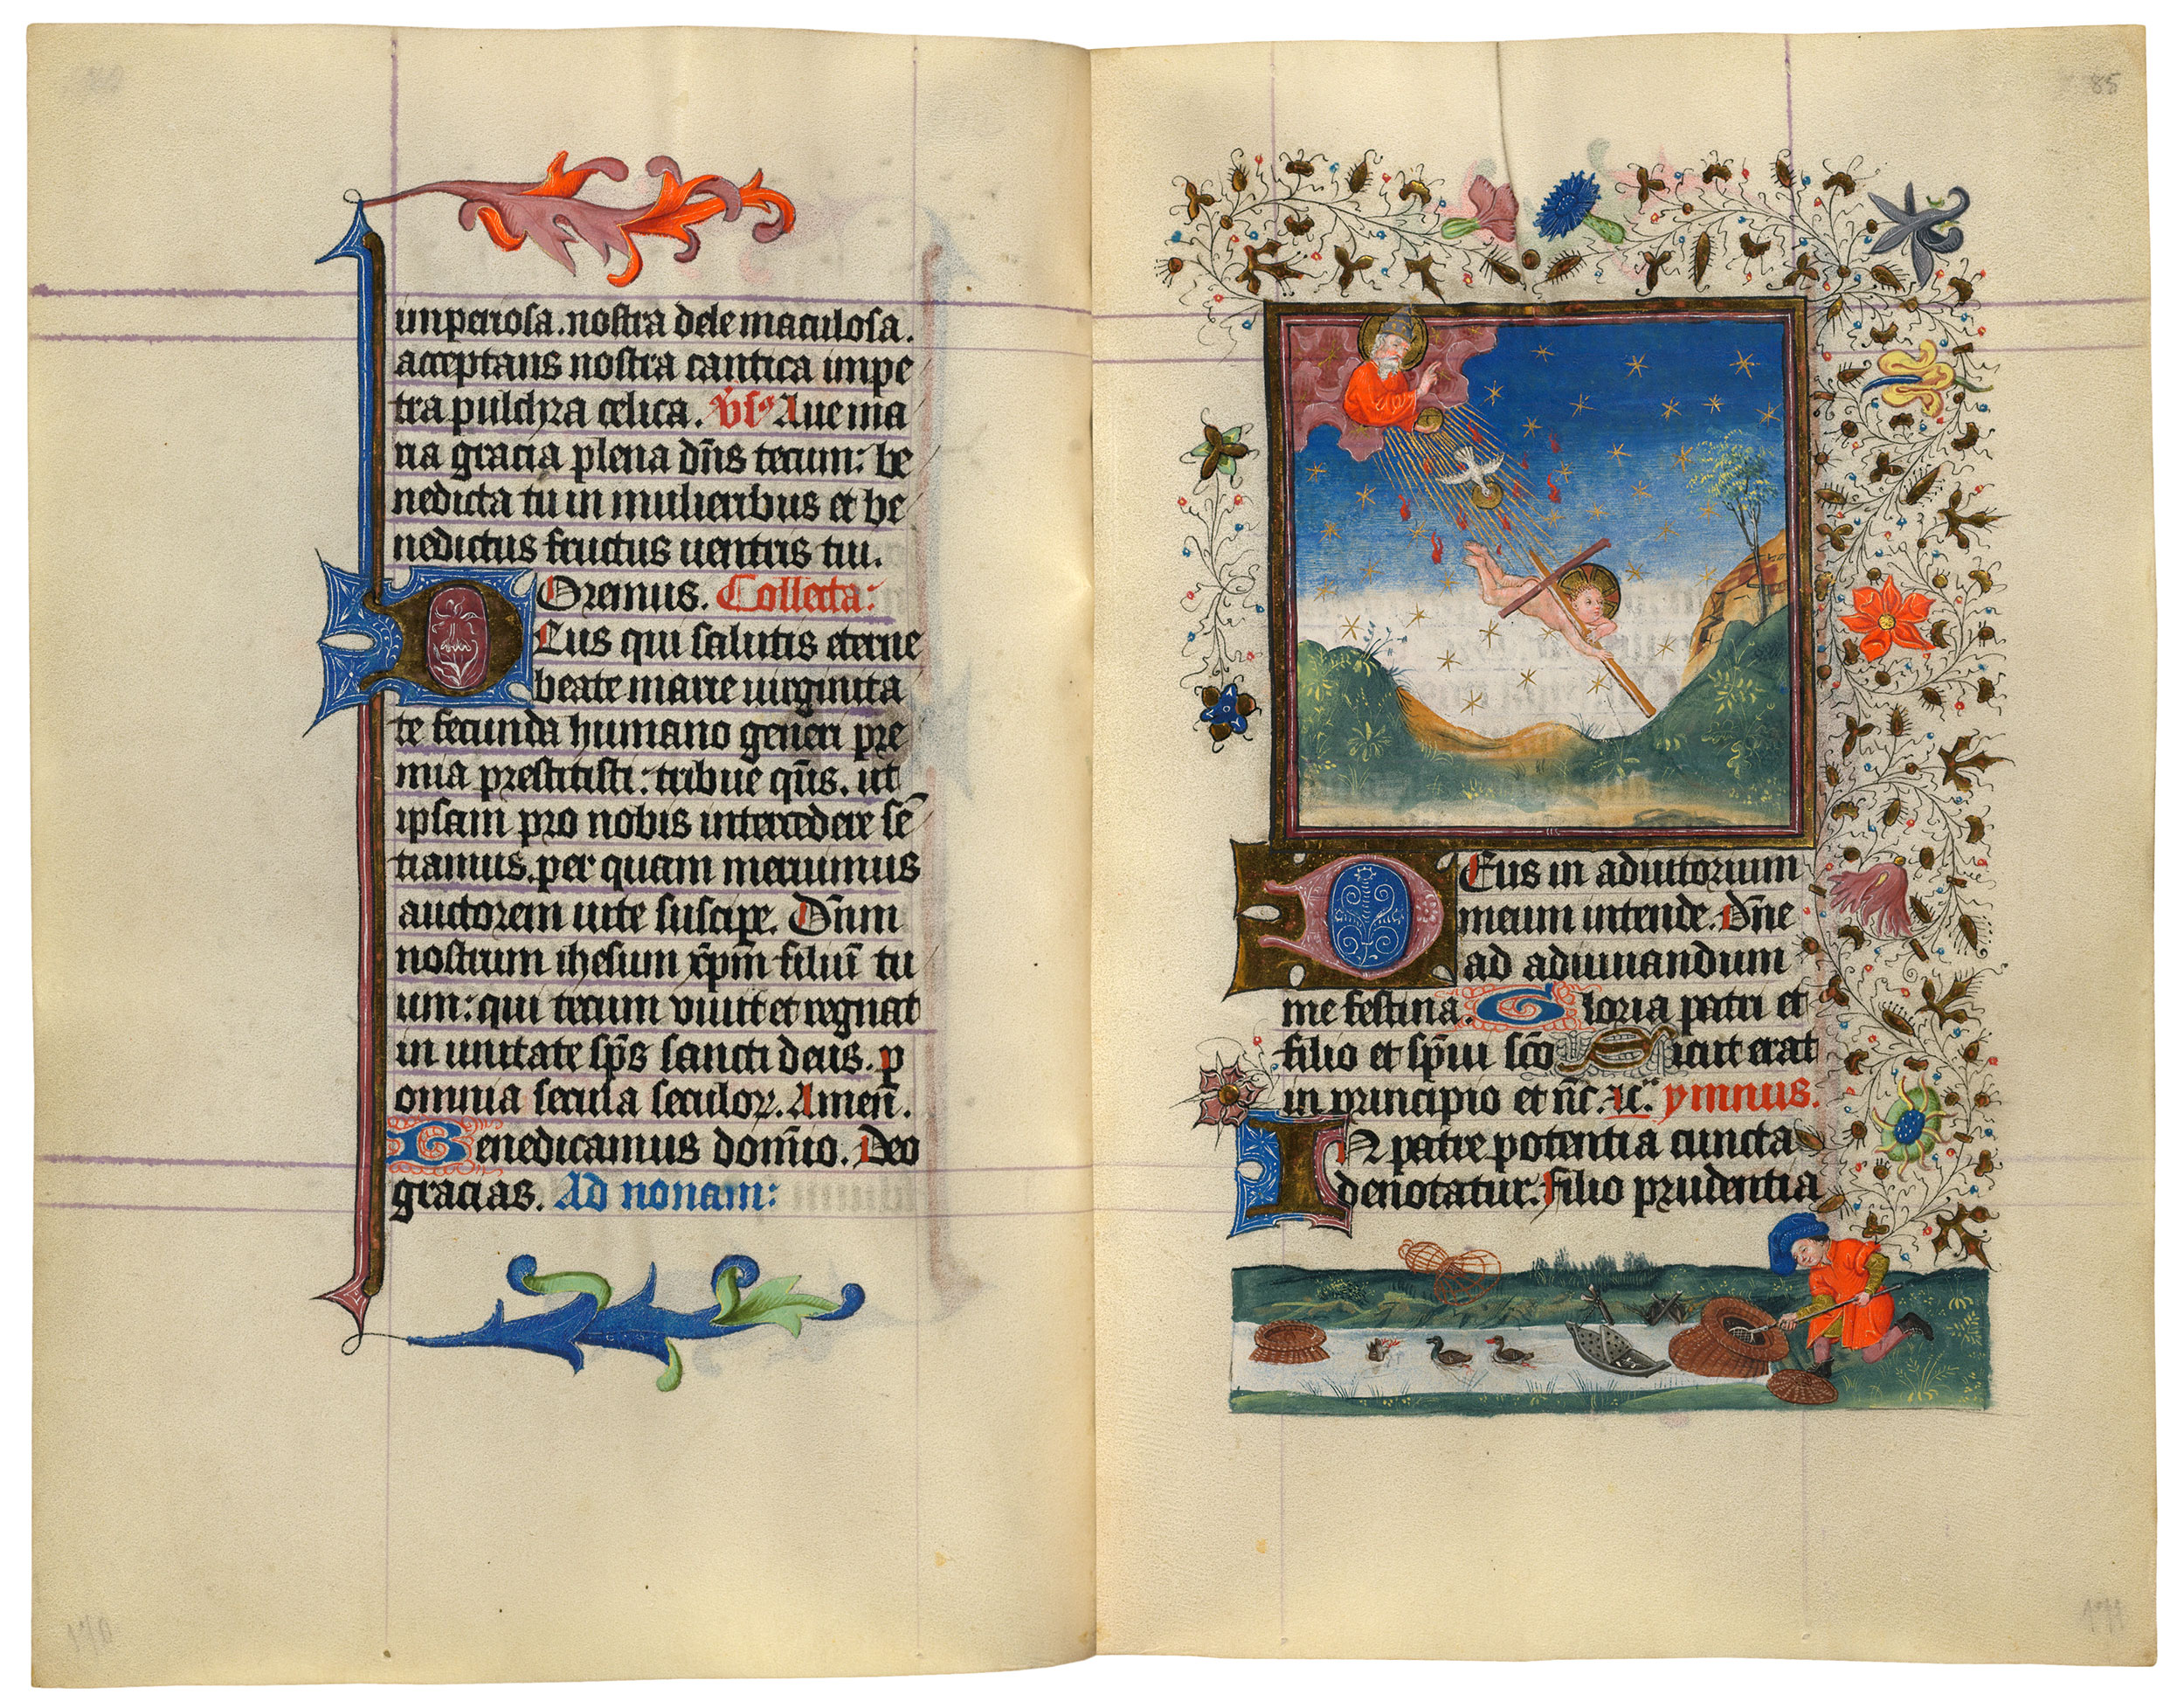 imperiosa. nostra dele maculosa.
acceptans nostra cantica impe
tra pulchra celica. v̄sᵒ Aue ma
ria gracia plena dn̄s tecum: be
nedicta tu in mulieribus et be
nedictus fructus uentris tui.
Oremus. Collecta:
DEus qui salutis eterne
beate marie uirginita
te fecunda humano generi pre
mia prestitisti: tribue qs̄. ut
ipsam pro nobis intercedere sē
tiamus. per quam meruimus
auctorem uite suscipe. Dn̄m
nostrum ihesum xp̄m filiū tu
um: qui tecum viuit et regnat
in unitate sp̄s sancti deus. p
omnia secula seculoꝝ. Amen̄.
Benedicamus domīo. Deo
gracias. Ad nonam:
170
85
DEus in adiutorium
meum intende. Dn̄e
ad adiuuandum
me festina. Gloria patri et
filio et sp̄iui sc̄o Sicut erat
in principio et nc̄. ac̄. ymnus.
IN patre potentia cuncta
denotatur. filio prudentia
171